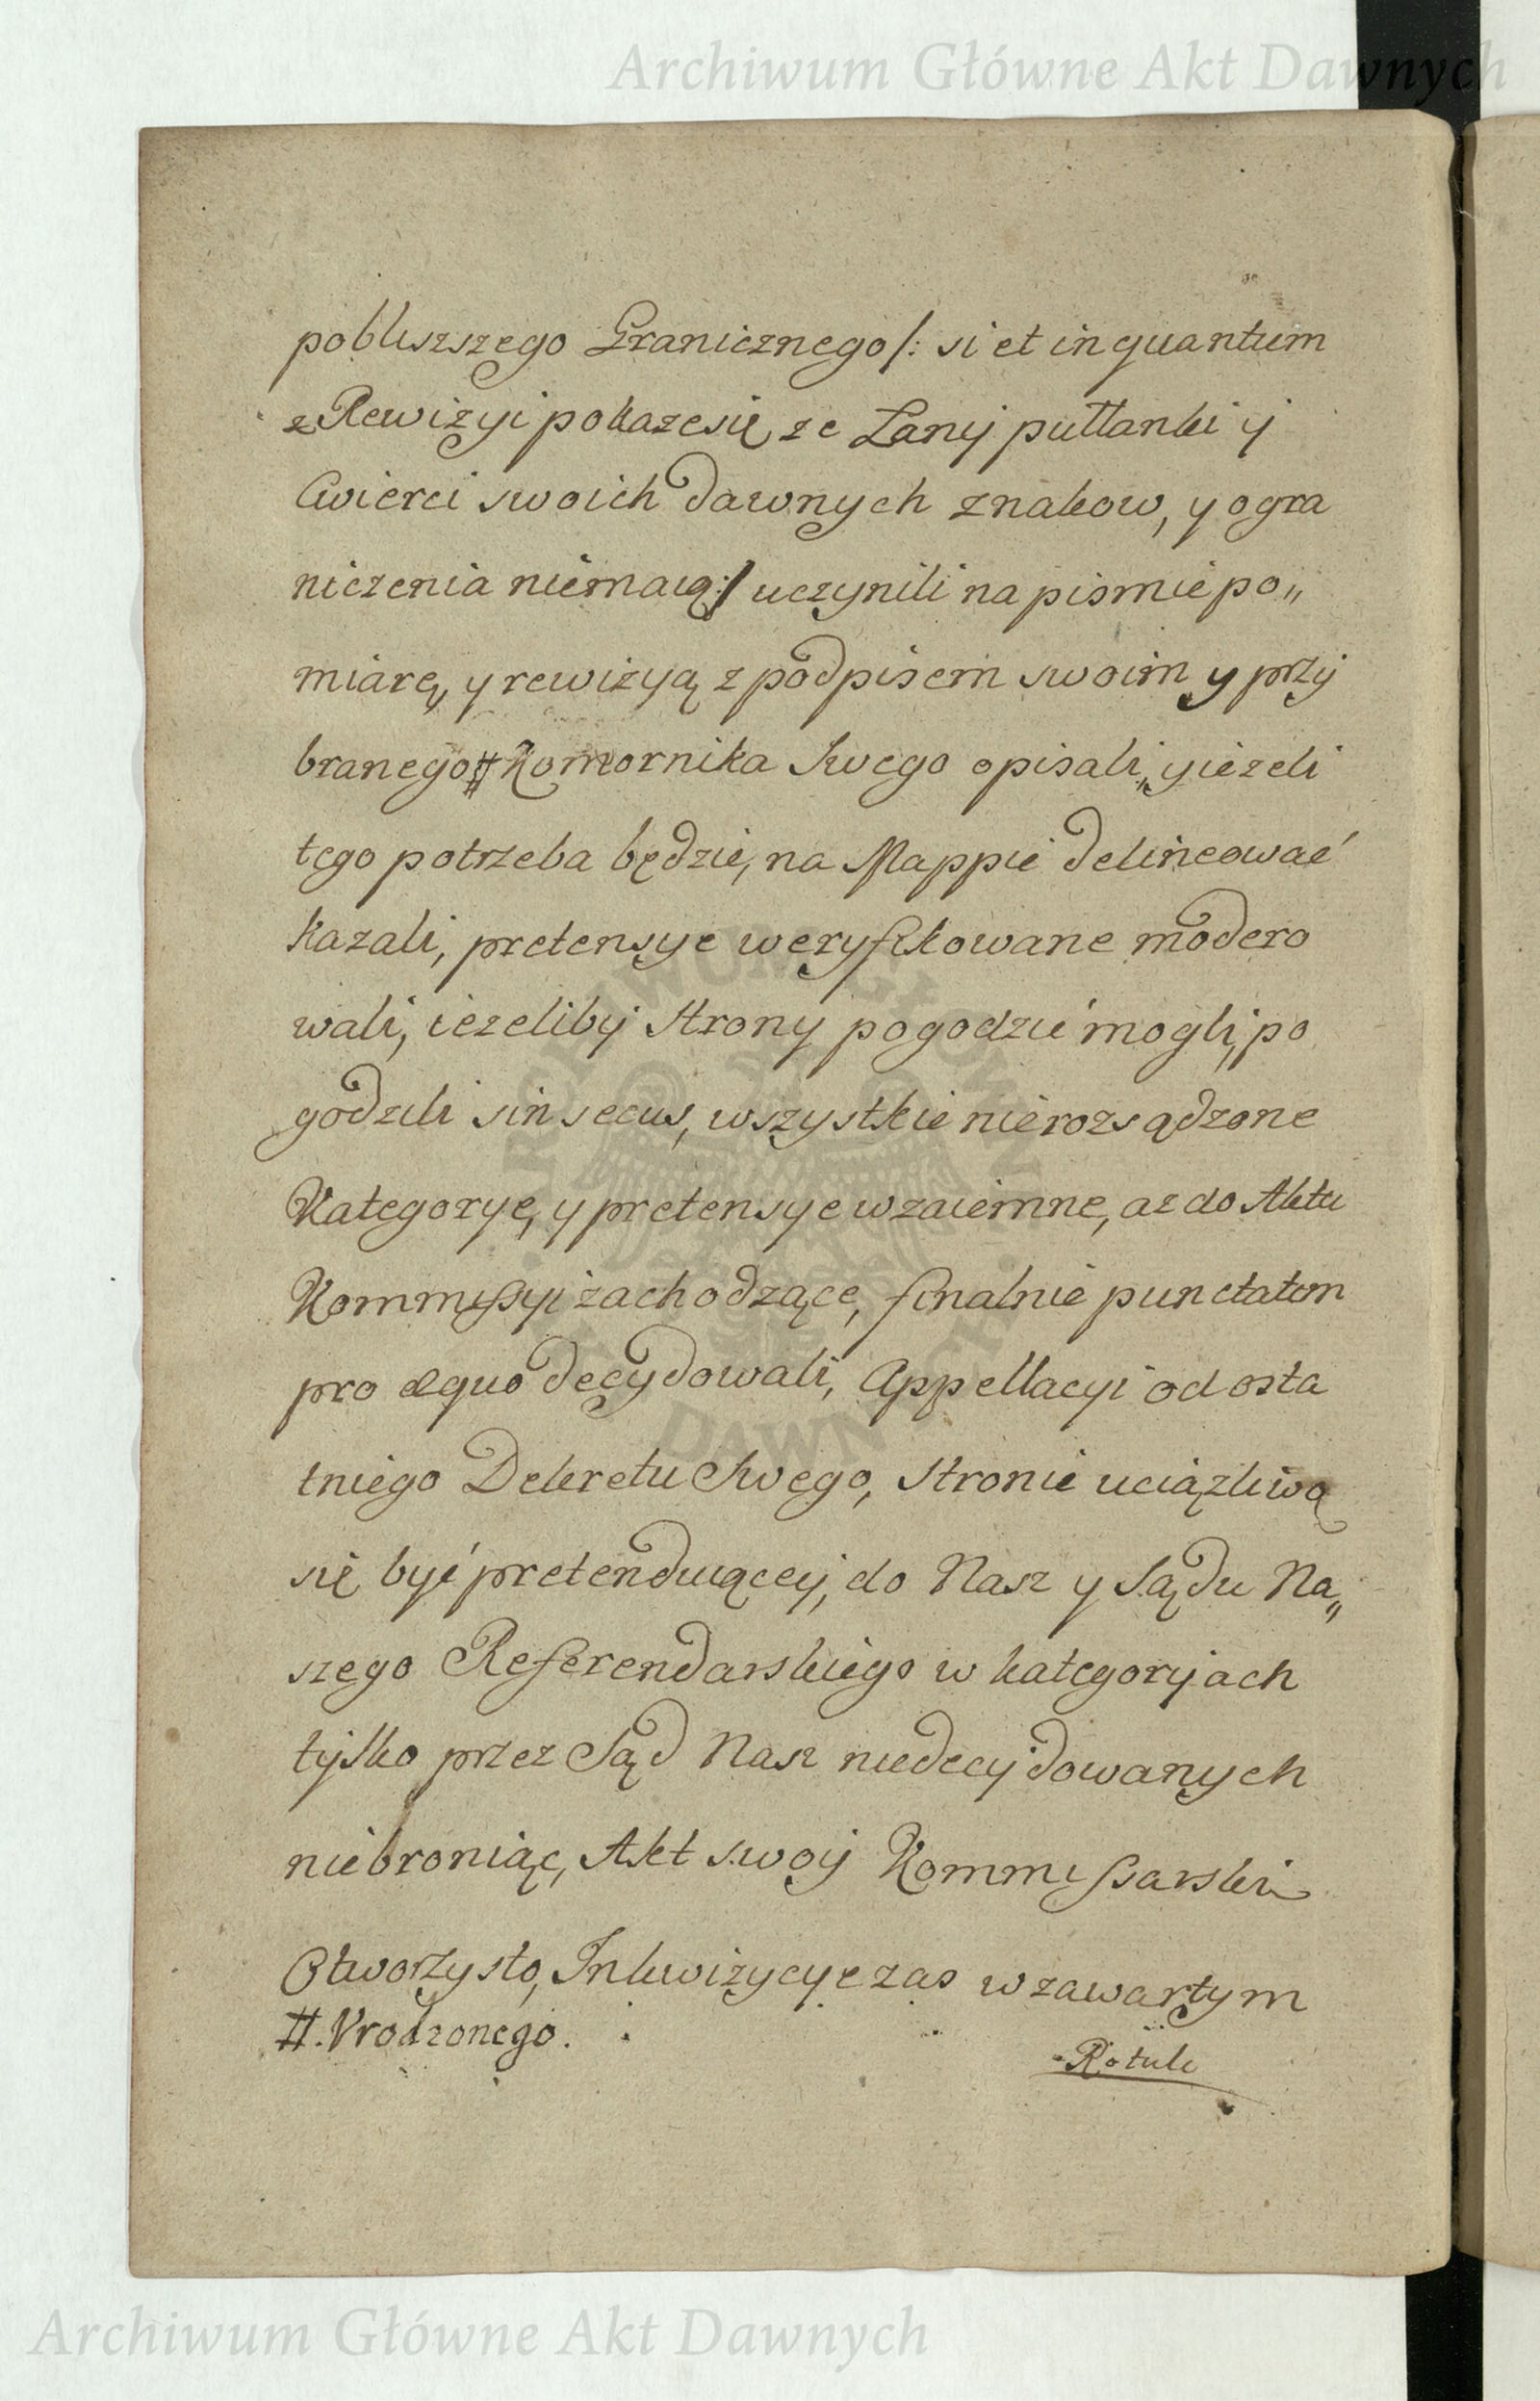 Archiwum Główne Akt Dawnych
pobliszszego Granicznego/: si et in quantum
z Rewizyi pokaze się ze Łany pułłanki y
Cwierci swoich dawnych znakow, y ogra
niczenia niemaią:/ uczynili na pismie po„
miarę, y rewizyą z podpisem swoim y przy
branego # Komornika Swego opisali„ y iezeli
tego potrzeba będzie, na Mappie delineować
kazali, pretensye weryfikowane modero
wali, iezeliby Strony pogodzić mogli, po
godzili sin secus, wszystkie nierozsądzone
Kategorye, y pretensye wzaiemne, az do Aktu
Kommissyi zachodzące, finalnie punctatim
pro æquo decydowali, Appellacyi od osta
tniego Dekretu Swego, Stronie uciązliwą
się być pretenduiącey, do Nasz y Sądu Na„
szego Referendarskiego w kategoryach
tylko przez Sąd Nasz niedecydowanych
niebroniąc, Akt swoy Kommissarski
Otworzysto, Inkwizycye zas w zawartym
#. Vrodzonego.
Rotule
Archiwum Główne Akt Dawnych
ARCHIWUM GŁÓWNE AKT DAWNYCH